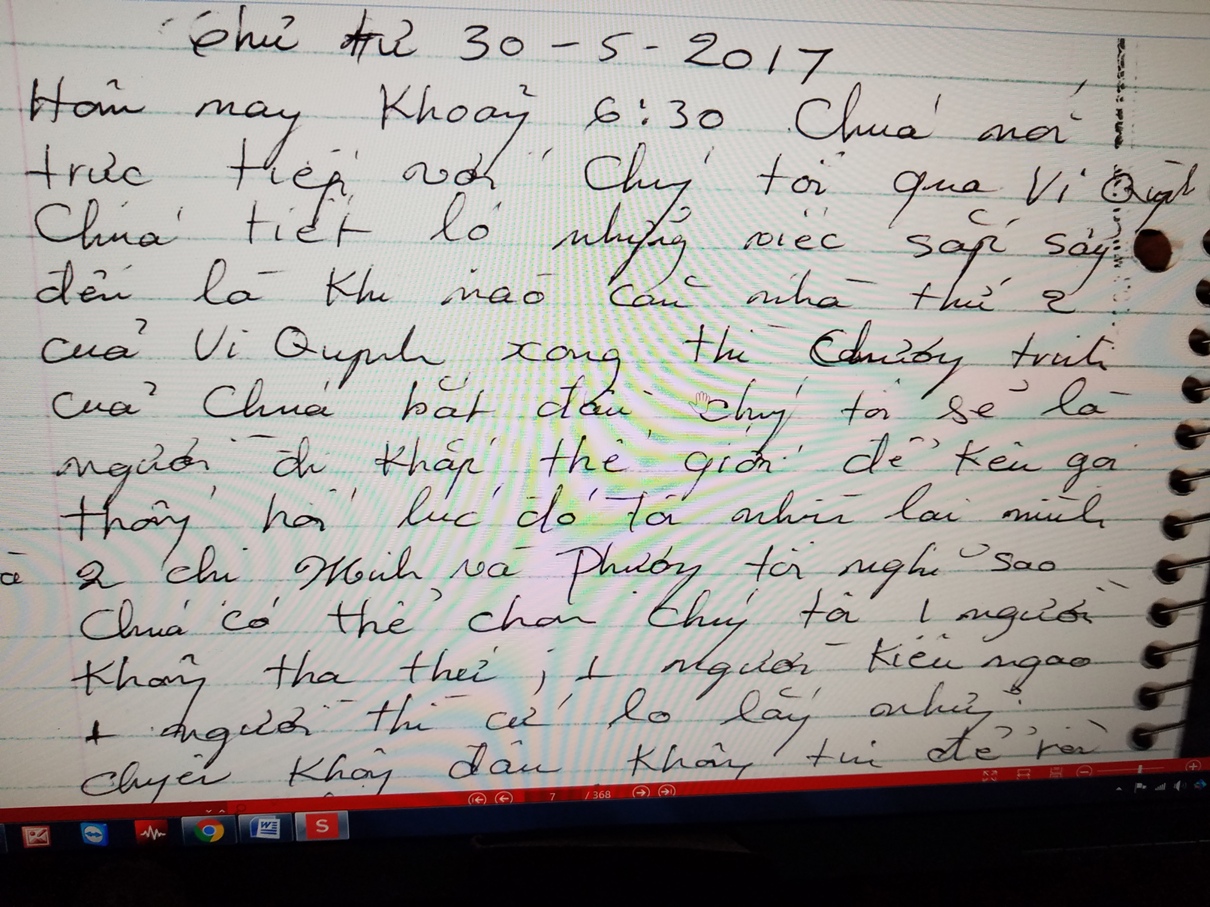 Thứ tư 30-5-2017
Hôm nay Khoảng 6:30 Chúa nói
trực tiếp với Chúng tôi qua Vi Quỳnh
Chúa tiết lộ những việc sắp sảy
đến là Khi nào căn nhà thứ 2
của Vi Quỳnh xong thì Chương trình
của Chúa bắt đầu chúng tôi sẽ là
người đi khắp thế giới để Kêu gọi
thống hối lúc đó tôi nhìn lại mình
và 2 chị Minh và Phương tôi nghĩ sao
Chúa có thể chọn Chúng tôi 1 người
Không tha thứ, 1 người Kiêu ngạo
1 người thì cứ lo lắng những
chuyện Không đâu Không tin để rồi
7 / 368